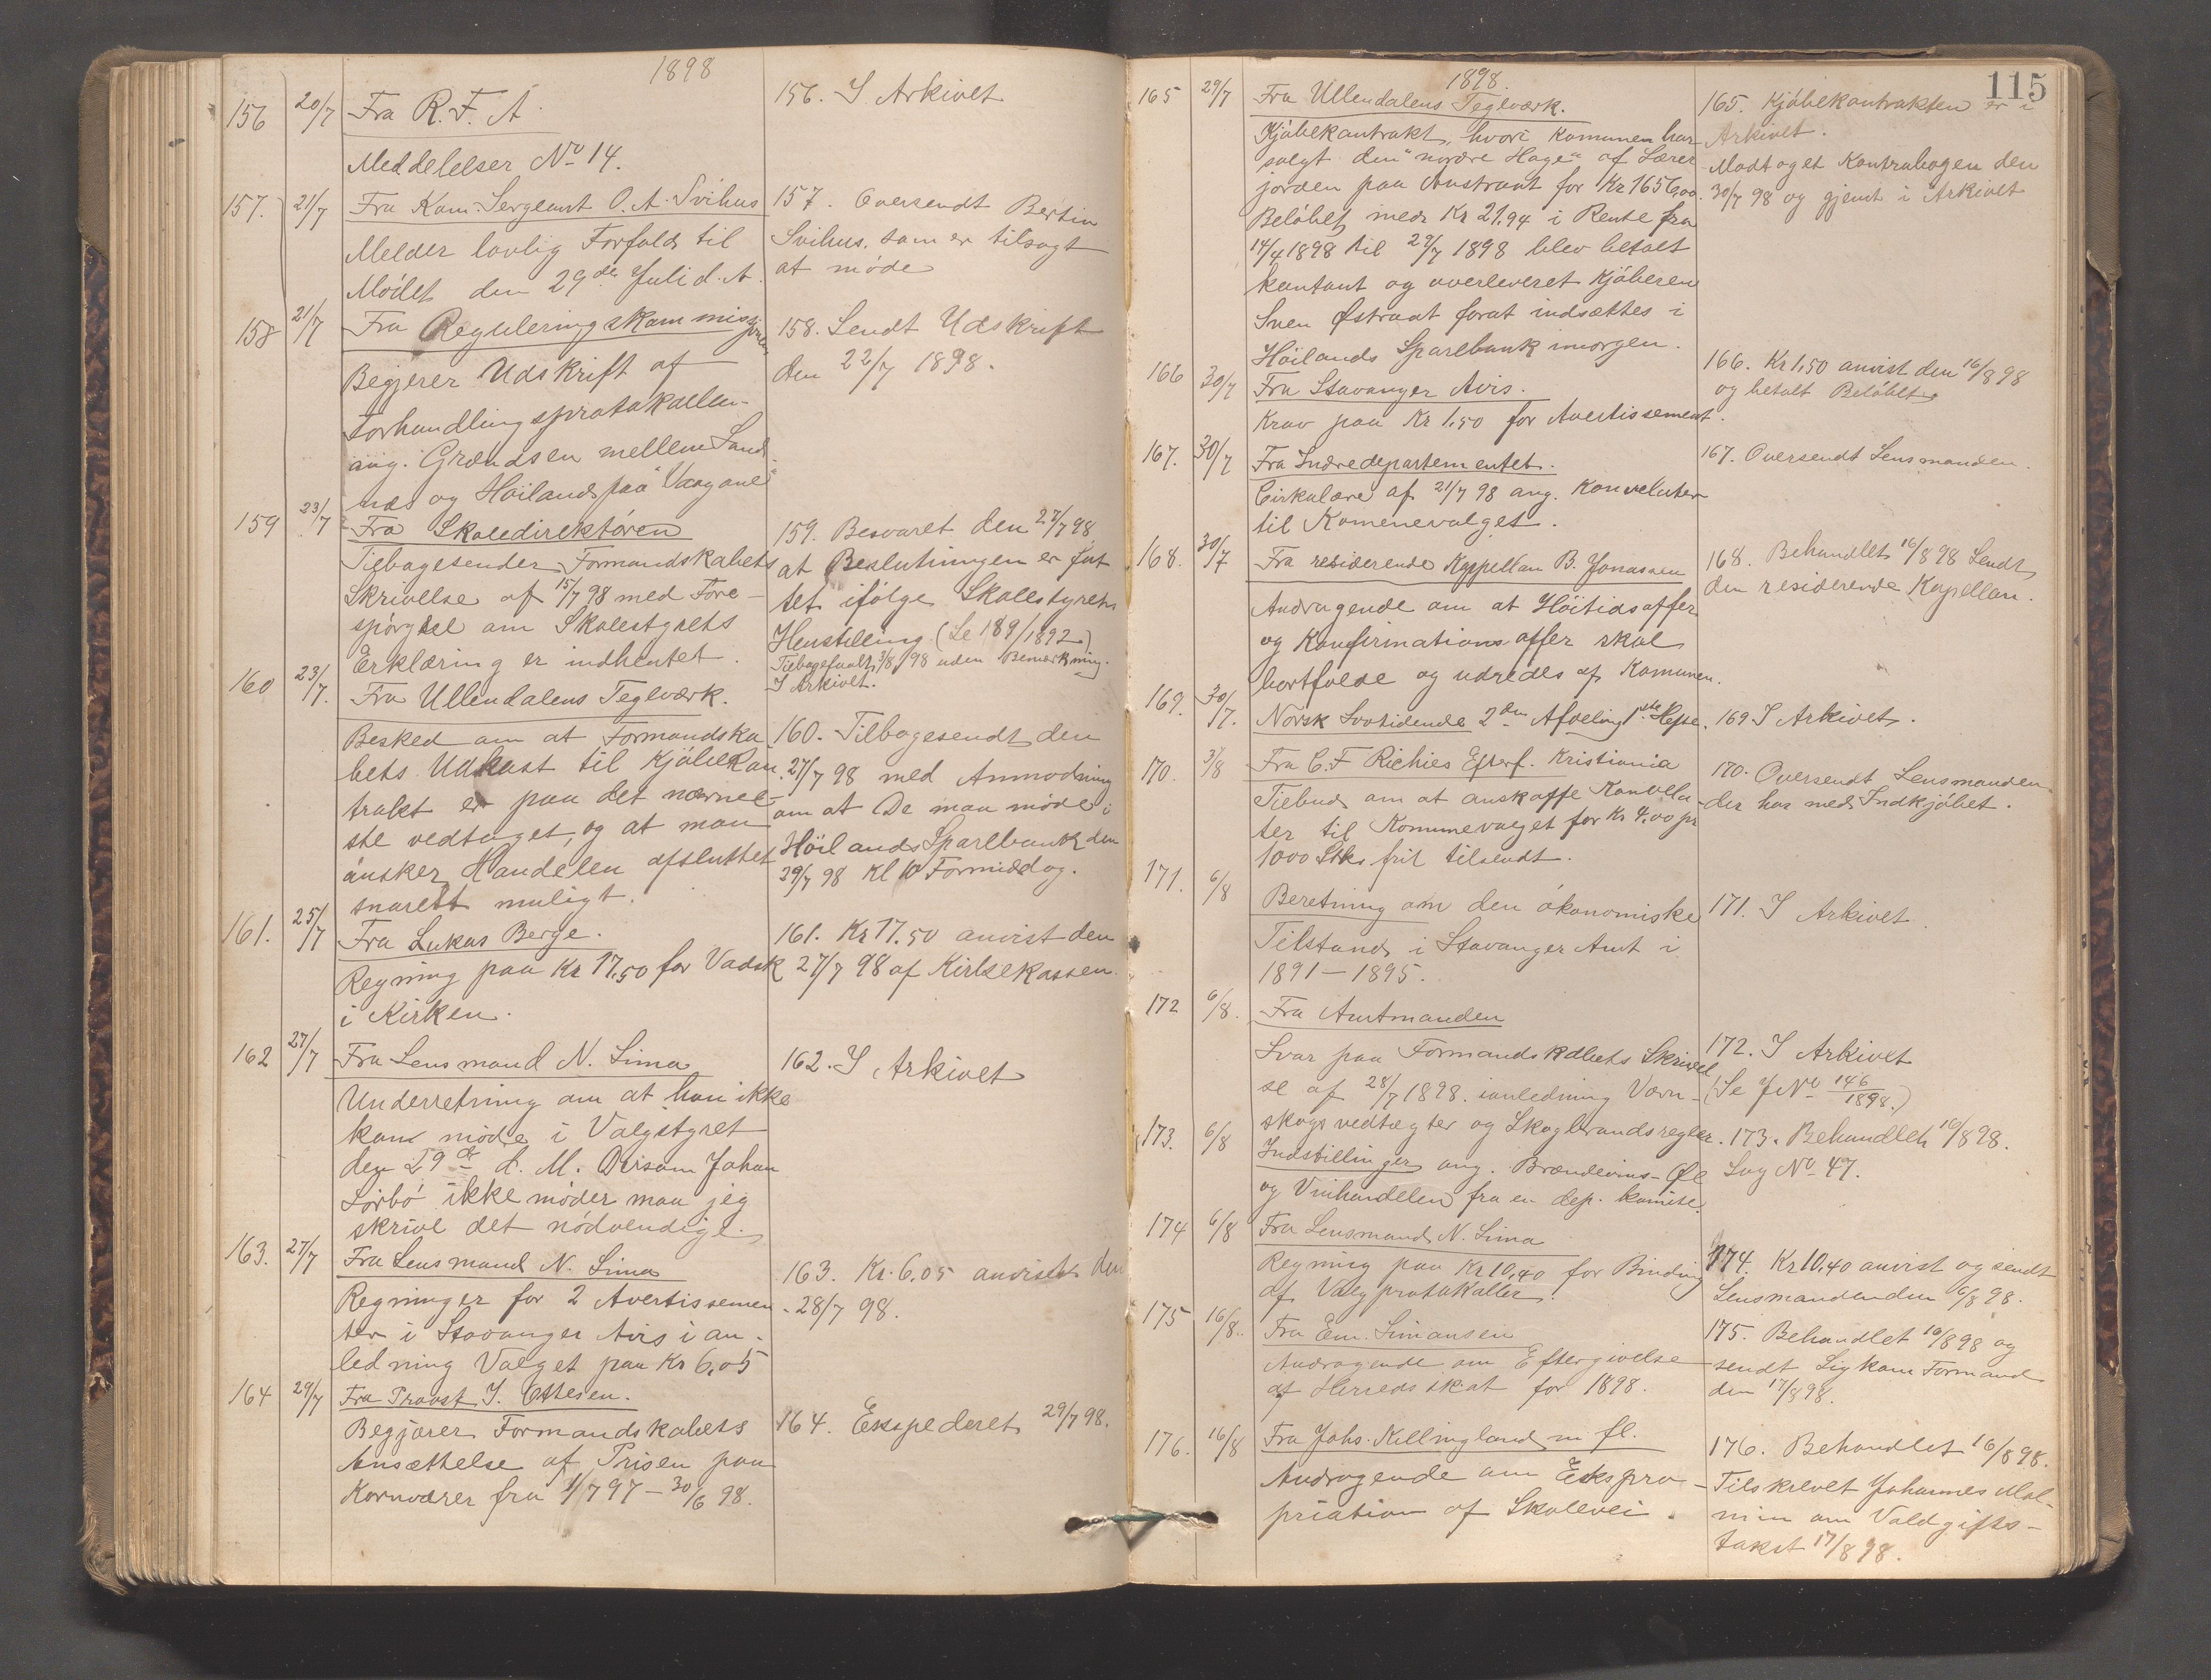 1898
156 20/7 Fra R. F. A.
Meddelelser No 14.
156. I Arkivet
157. 21/7 Fra Kom. Sergeant O. A. Svihus
Melder lovlig Forfald til
Mödet den 29de Juli d. A.
157. Oversendt Bertin
Svihus, som er tilsagt
at møde
158 21/7 Fra Reguleringskommissionen
Begjerer Udskrift af
Forhandlingsprotokollen
ang. Grændsen mellem Sand-
næs og Höiland paa "Vaagane"
158. Sendt Udskrift
den 22/7 1898.
159 23/7 Fra Skoledirektören
Tilbagesender Formandskabets
Skrivelse af 15/7 98 med Fore-
spörgsel om Skolestyrets
Erklæring er indhentet.
159. Besvaret den 27/7 98
at Beslutningen er fat
tet ifölge Skolestyrets
Henstilling (Se 189/1892)
Tilbagefaaet 3/8 98 uden Bemærkning.
I Arkivet.
160 23/7. Fra Ullendalens Teglværk.
Besked om at Formandska
bets Udkast til Kjöbekon
trakt er paa det nærmeste
ste vedtaget, og at man
önsker Handelen afsluttet
snarest muligt.
160. Tilbagesendt den
27/7 98 med Anmodning
om at De maa möde i
Höilands Sparebank den
29/7 98 Kl 10 Formiddag.
161. 25/7 Fra Lukas Berge.
Regning paa Kr 17,50 for Vadsk
i Kirken.
161. Kr 17.50 anvist den
27/7 98 af Kirkekassen.
162 27/7 Fra Lensmand N. Lima
Underretning om at han ikke
kan møde i Valgstyret
den 29de d. M. Dersom Johan
Sörbö ikke möder maa jeg
skrive det nödvendige.
162. I Arkivet
163. 27/7 Fra Lensmand N. Lima
Regninger for 2 Avertissemen
ter i Stavanger Avis i an-
ledning Valget paa Kr 6,05
163. Kr. 6,05 anvist den
28/7 98.
164 29/7 Fra Provst I. Ottesen.
Begjærer Formandskabets
Ansættelse af Prisen paa
Kornvarer fra 1/7 97 - 30/6 98.
164. Ekspederet 29/7 98.
115
1898.
165 29/7 Fra Ullendalens Teglværk.
Kjöbekontrakt, hvori Komunen har
solgt den "nordre Hage" af Lærer
jorden paa Austraat for Kr 1656,00.
Belöbet med Kr 21,94 i Rente fra
14/4 1898 til 29/7 1898 blev betalt
kontant og overleveret Kjöberen
Sven Östraat forat indsættes i
Höilands Sparebank imorgen.
165. Kjöbekontrakten er i
Arkivet.
Modtaget Kontrabogen den
30/7 98 og gjemt i Arkivet
166 30/7 Fra Stavanger Avis.
Krav paa Kr 1,50 for Avertissement.
166. Kr 1,50 anvist den 16/8 98
og betalt Belöbet
167. 30/7 Fra Indredepartementet.
Cirkulære af 21/7 98 ang. Konvoluter
til Komenevalget.
167. Oversendt Lensmanden.
168. 30/7 Fra residerende Kappellan B. Jonassen
Andragende om at Höitidsoffer
og Konfirmationsoffer skal
bortfalde og udredes af Komunen.
168. Behandlet 16/8 98 Sendt
den residerende Kapellan.
169. 30/7. Norsk Lovtidende 2den Afdeling 1ste Hefte.
169 I Arkivet.
170. 3/8 Fra C. F. Richies Efterf. Kristiania
Tilbud om at anskaffe Konvolu-
ter til Kommunevalget for Kr 4,00 pr
1000 Stks frit tilsendt.
170. Oversendt Lensmanden
der har med Indkjöbet.
171. 6/8 Beretning om den ökonomiske
Tilstand i Stavanger Amt i
1891 - 1895.
171. I Arkivet
172 6/8. Fra Amtmanden
Svar paa Formandskabets Skrivel
se af 28/7 1898. ianledning Værn-
skogsvedtægter og Skogbrandsregler.
172. I Arkivet
(Se J No 146/1898.)
173. 6/8 Indstillinger ang. Brændevins- Øl
og Vinhandelen fra en dep. komite.
173. Behandlet 16/8 98.
Sag No 47.
174 6/8 Fra Lensmand N. Lima
Regning paa Kr 10,40 for Binding
af Valgprotokoller.
174. Kr 10,40 anvist og sendt
Lensmanden den 6/8 98.
175 16/8. Fra Em. Simonsen
Andragende om Eftergivelse
af Herredsskat for 1898.
175. Behandlet 16/8 98 og
sendt Ligkom Formand
den 17/8 98.
176. 16/8 Fra Johs. Killingland m fl.
Andragende om Ekspro-
priation af Skolevei.
176. Behandlet 16/8 98.
Tilskrevet Johannes Mal-
min om Voldgifts-
takst 17/8 98.